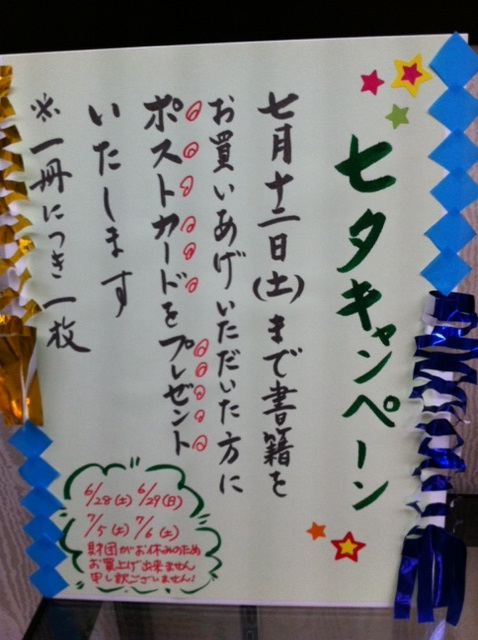 七夕キャンペーン
七月十二日(土)まで書籍を
お買いあげいただいた方に
ポストカードをプレゼント
いたします
※一冊につき一枚
6/28(土) 6/29(日)
7/5(土) 7/6(土)
財団がお休みのため
お買上げ出来ません
申し訳ございません!